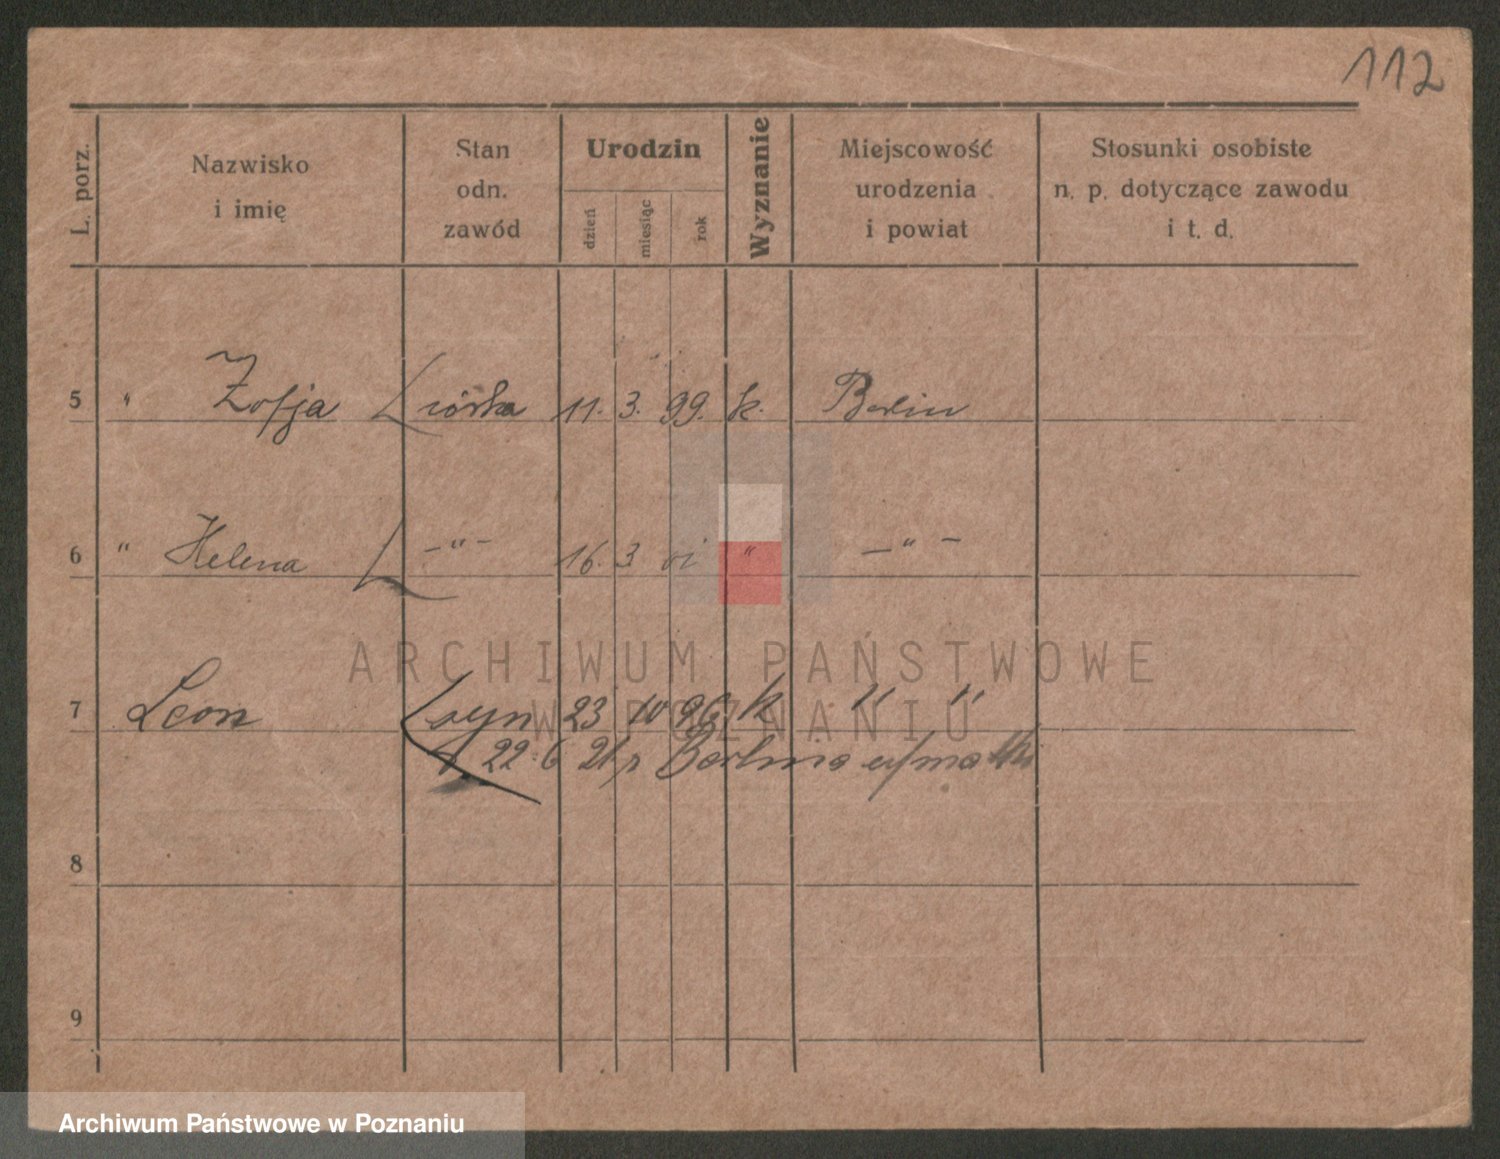 112
L. porz.
Nazwisko
i imię
Stan
odn.
zawód
Urodzin
dzień
miesiąc
rok
Wyznanie
Miejscowość
urodzenia
i powiat
Stosunki osobiste
n. p. dotyczące zawodu
i t. d.
5 " Zofja córka 11. 3. 99. k. Berlin
6 " Helena –"– 16. 3 01 " –"–
7 Leon syn 23 10 96 k " "
22.6 21 Berlina
8
9
ARCHIWUM PAŃSTWOWE
W POZNANIU
Archiwum Państwowe w Poznaniu